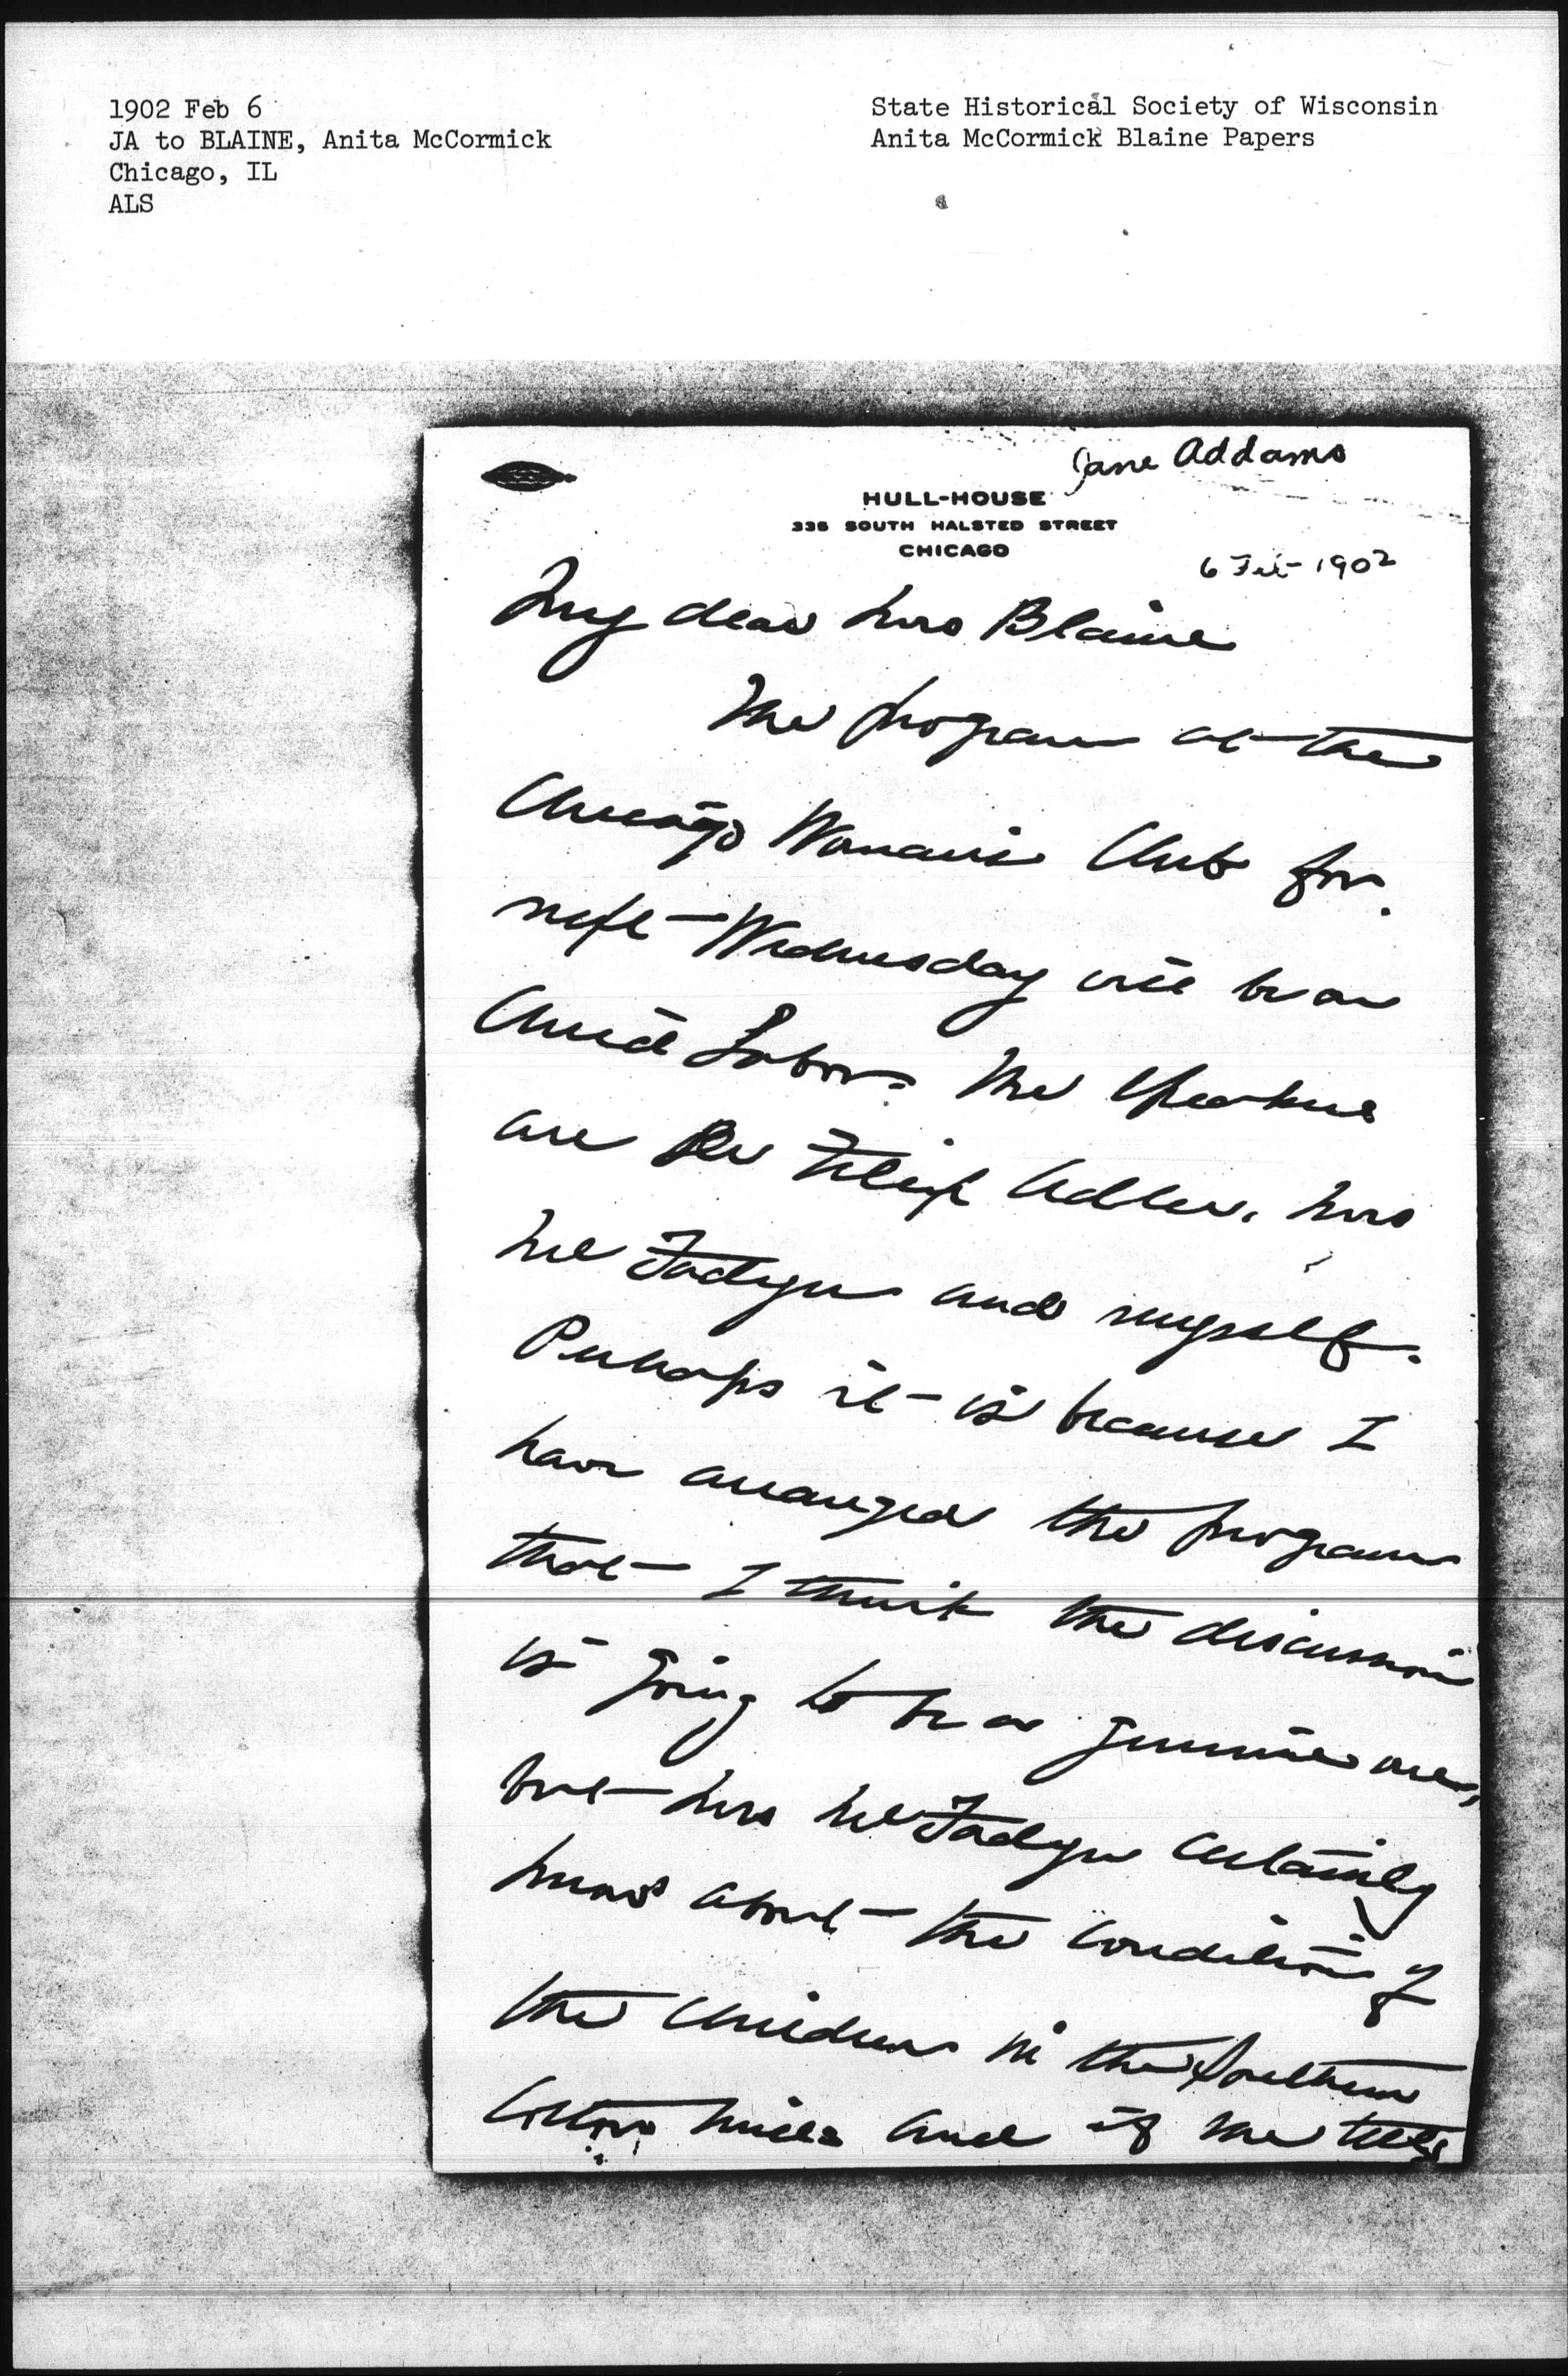 1902 Feb 6
JA to BLAINE, Anita McCormick
Chicago, IL
ALS
State Historical Society of Wisconsin
Anita McCormick Blaine Papers
Jane Addams
HULL-HOUSE
335 SOUTH HALSTED STREET
CHICAGO
6 Feb 1902
My dear Mrs Blaine
The program at the
Chicago Woman's Club for
next Wednesday will be on
Child Labor. The speakers
are Dr Felix Adler, Mrs
Mc Fadyen and myself.
Perhaps it is because I
have arranged the program
that I think the discussion
is going to be a genuine one,
but Mrs McFadyen certainly
knows about the condition of
the children in the Southern
Cotton Mills and if she tells